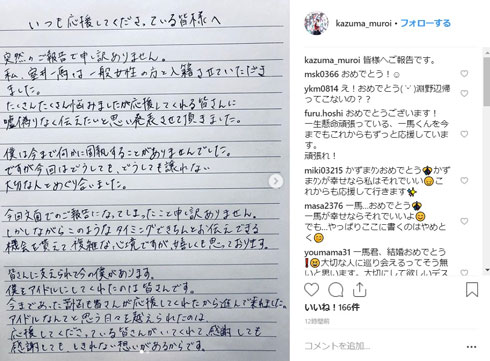 いつも応援してくださっている皆様へ
突然のご報告で申し訳ありません。
私、室井一馬は一般女性の方と入籍させていただき
ました。
たくさんたくさん悩みましたが応援してくれる皆さんに
嘘偽りなく伝えたいと思い発表させて頂きました。
僕は今まで何かに固執することがありませんでした。
ですが今回はどうしても、どうしても譲れない
大切な人とめぐり会いました。
今回入籍でのご報告になってしまったこと申し訳ありません。
しかしながらこのようなタイミングできちんとお伝えできる
機会を貰えて複雑な心境ですが、嬉しくも思っております。
皆さんに支えられて今の僕があります。
僕をアイドルにしてくれたのは皆さんです。
今まであった試練も皆さんが応援してくれたから進んで来れました。
アイドルなんてと思う日々を越えられたのは
応援してくださっている皆さんがいてくれて、感謝しても
感謝してもしきれない想いがあるからです。
kazuma_muroi • フォローする
kazuma_muroi 皆様へご報告です。
msk0366 おめでとう！☺
ykm0814 え！おめでとう( ˙˘˙ )淵野辺帰ってこないの？？
furu.hoshi おめでとうございます！
一生懸命頑張っている、一馬くんを今までもこれからもずっと応援しています。
頑張れ！
miki03215 かずまｸﾝおめでとう
かずまｸﾝが幸せなら私はそれでいい
これからも応援して行きます
masa2376 一馬…おめでとう
一馬が幸せならそれでいいよ
でも…やっぱりここに書くのはやめとく
youmama31 一馬君、結婚おめでとう
大切な人に巡り会えるってそう無いと思います。大切にして欲しいデス
いいね！166件
12時間前
コメントを追加...